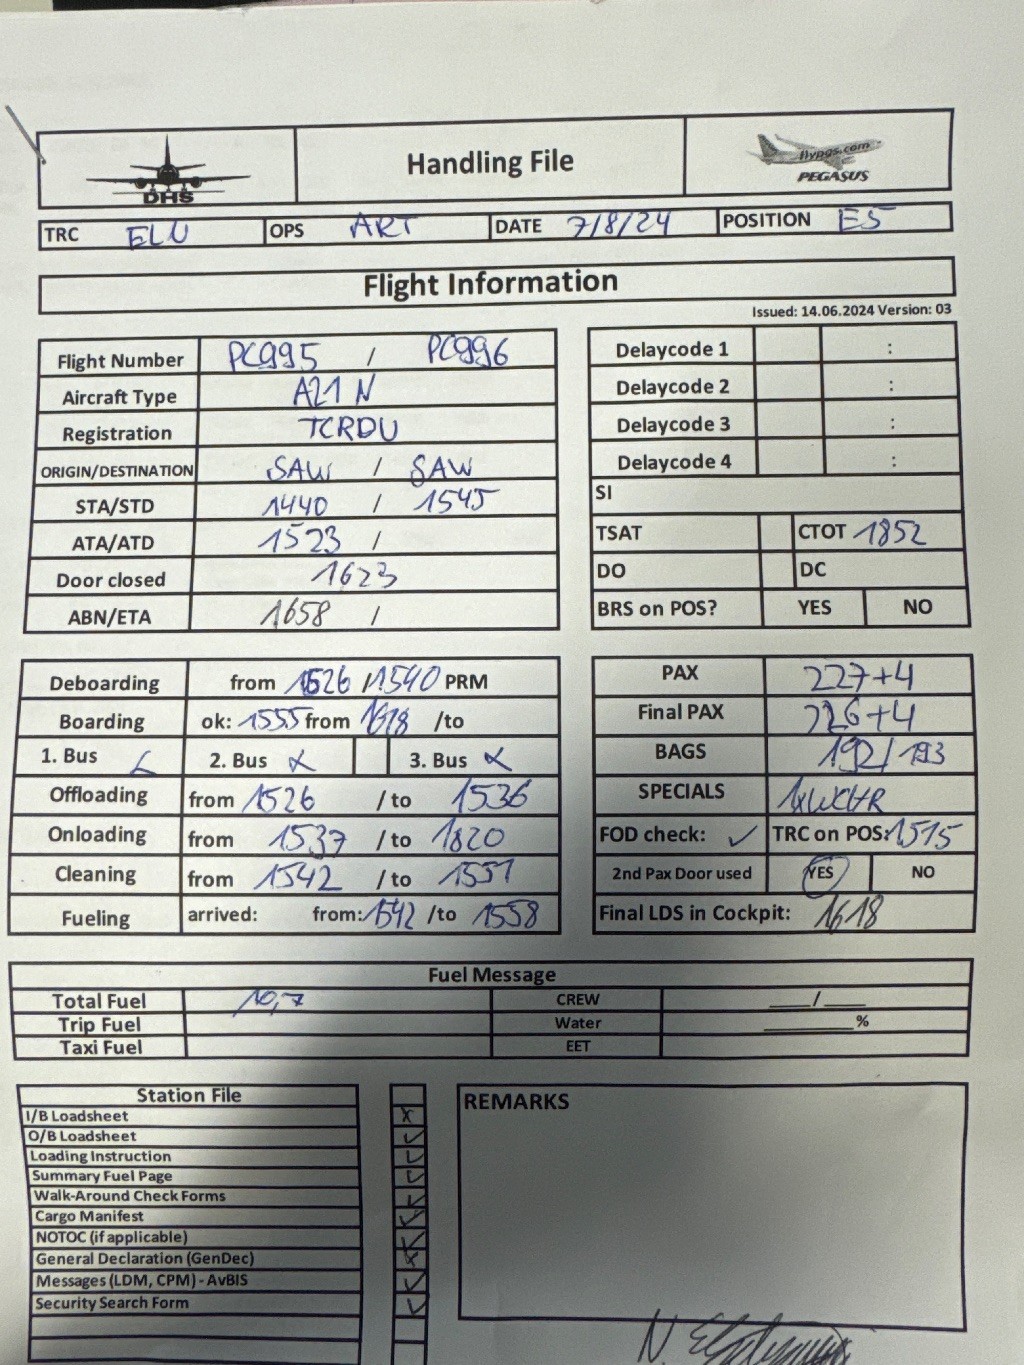 DHS
Handling File
flypgs.com
PEGASUS
TRC ELU OPS ART DATE 7/8/24 POSITION E5
Flight Information
Issued: 14.06.2024 Version: 03
Flight Number PC995 / PC996
Aircraft Type A21N
Registration TCRDU
ORIGIN/DESTINATION SAW / SAW
STA/STD 1440 / 1545
ATA/ATD 1523 /
Door closed 1623
ABN/ETA 1658 /
Delaycode 1 :
Delaycode 2 :
Delaycode 3 :
Delaycode 4 :
SI
TSAT CTOT 1852
DO DC
BRS on POS? YES NO
Deboarding from 1526 / 1540 PRM
Boarding ok: 1555 from 1618 /to
1. Bus 2. Bus 3. Bus
Offloading from 1526 / to 1536
Onloading from 1537 / to 1820
Cleaning from 1542 / to 1551
Fueling arrived: from: 1542 /to 1558
PAX 227+4
Final PAX 226+4
BAGS 192/193
SPECIALS 1xWCHR
FOD check: ✓ TRC on POS: 1515
2nd Pax Door used YES NO
Final LDS in Cockpit: 1618
Fuel Message
Total Fuel 10,7 CREW ___/___
Trip Fuel Water ______%
Taxi Fuel EET
Station File
I/B Loadsheet x
O/B Loadsheet ✓
Loading Instruction ✓
Summary Fuel Page ✓
Walk-Around Check Forms ✓
Cargo Manifest ✓
NOTOC (if applicable) ✓
General Declaration (GenDec) x
Messages (LDM, CPM) - AvBIS ✓
Security Search Form ✓
REMARKS